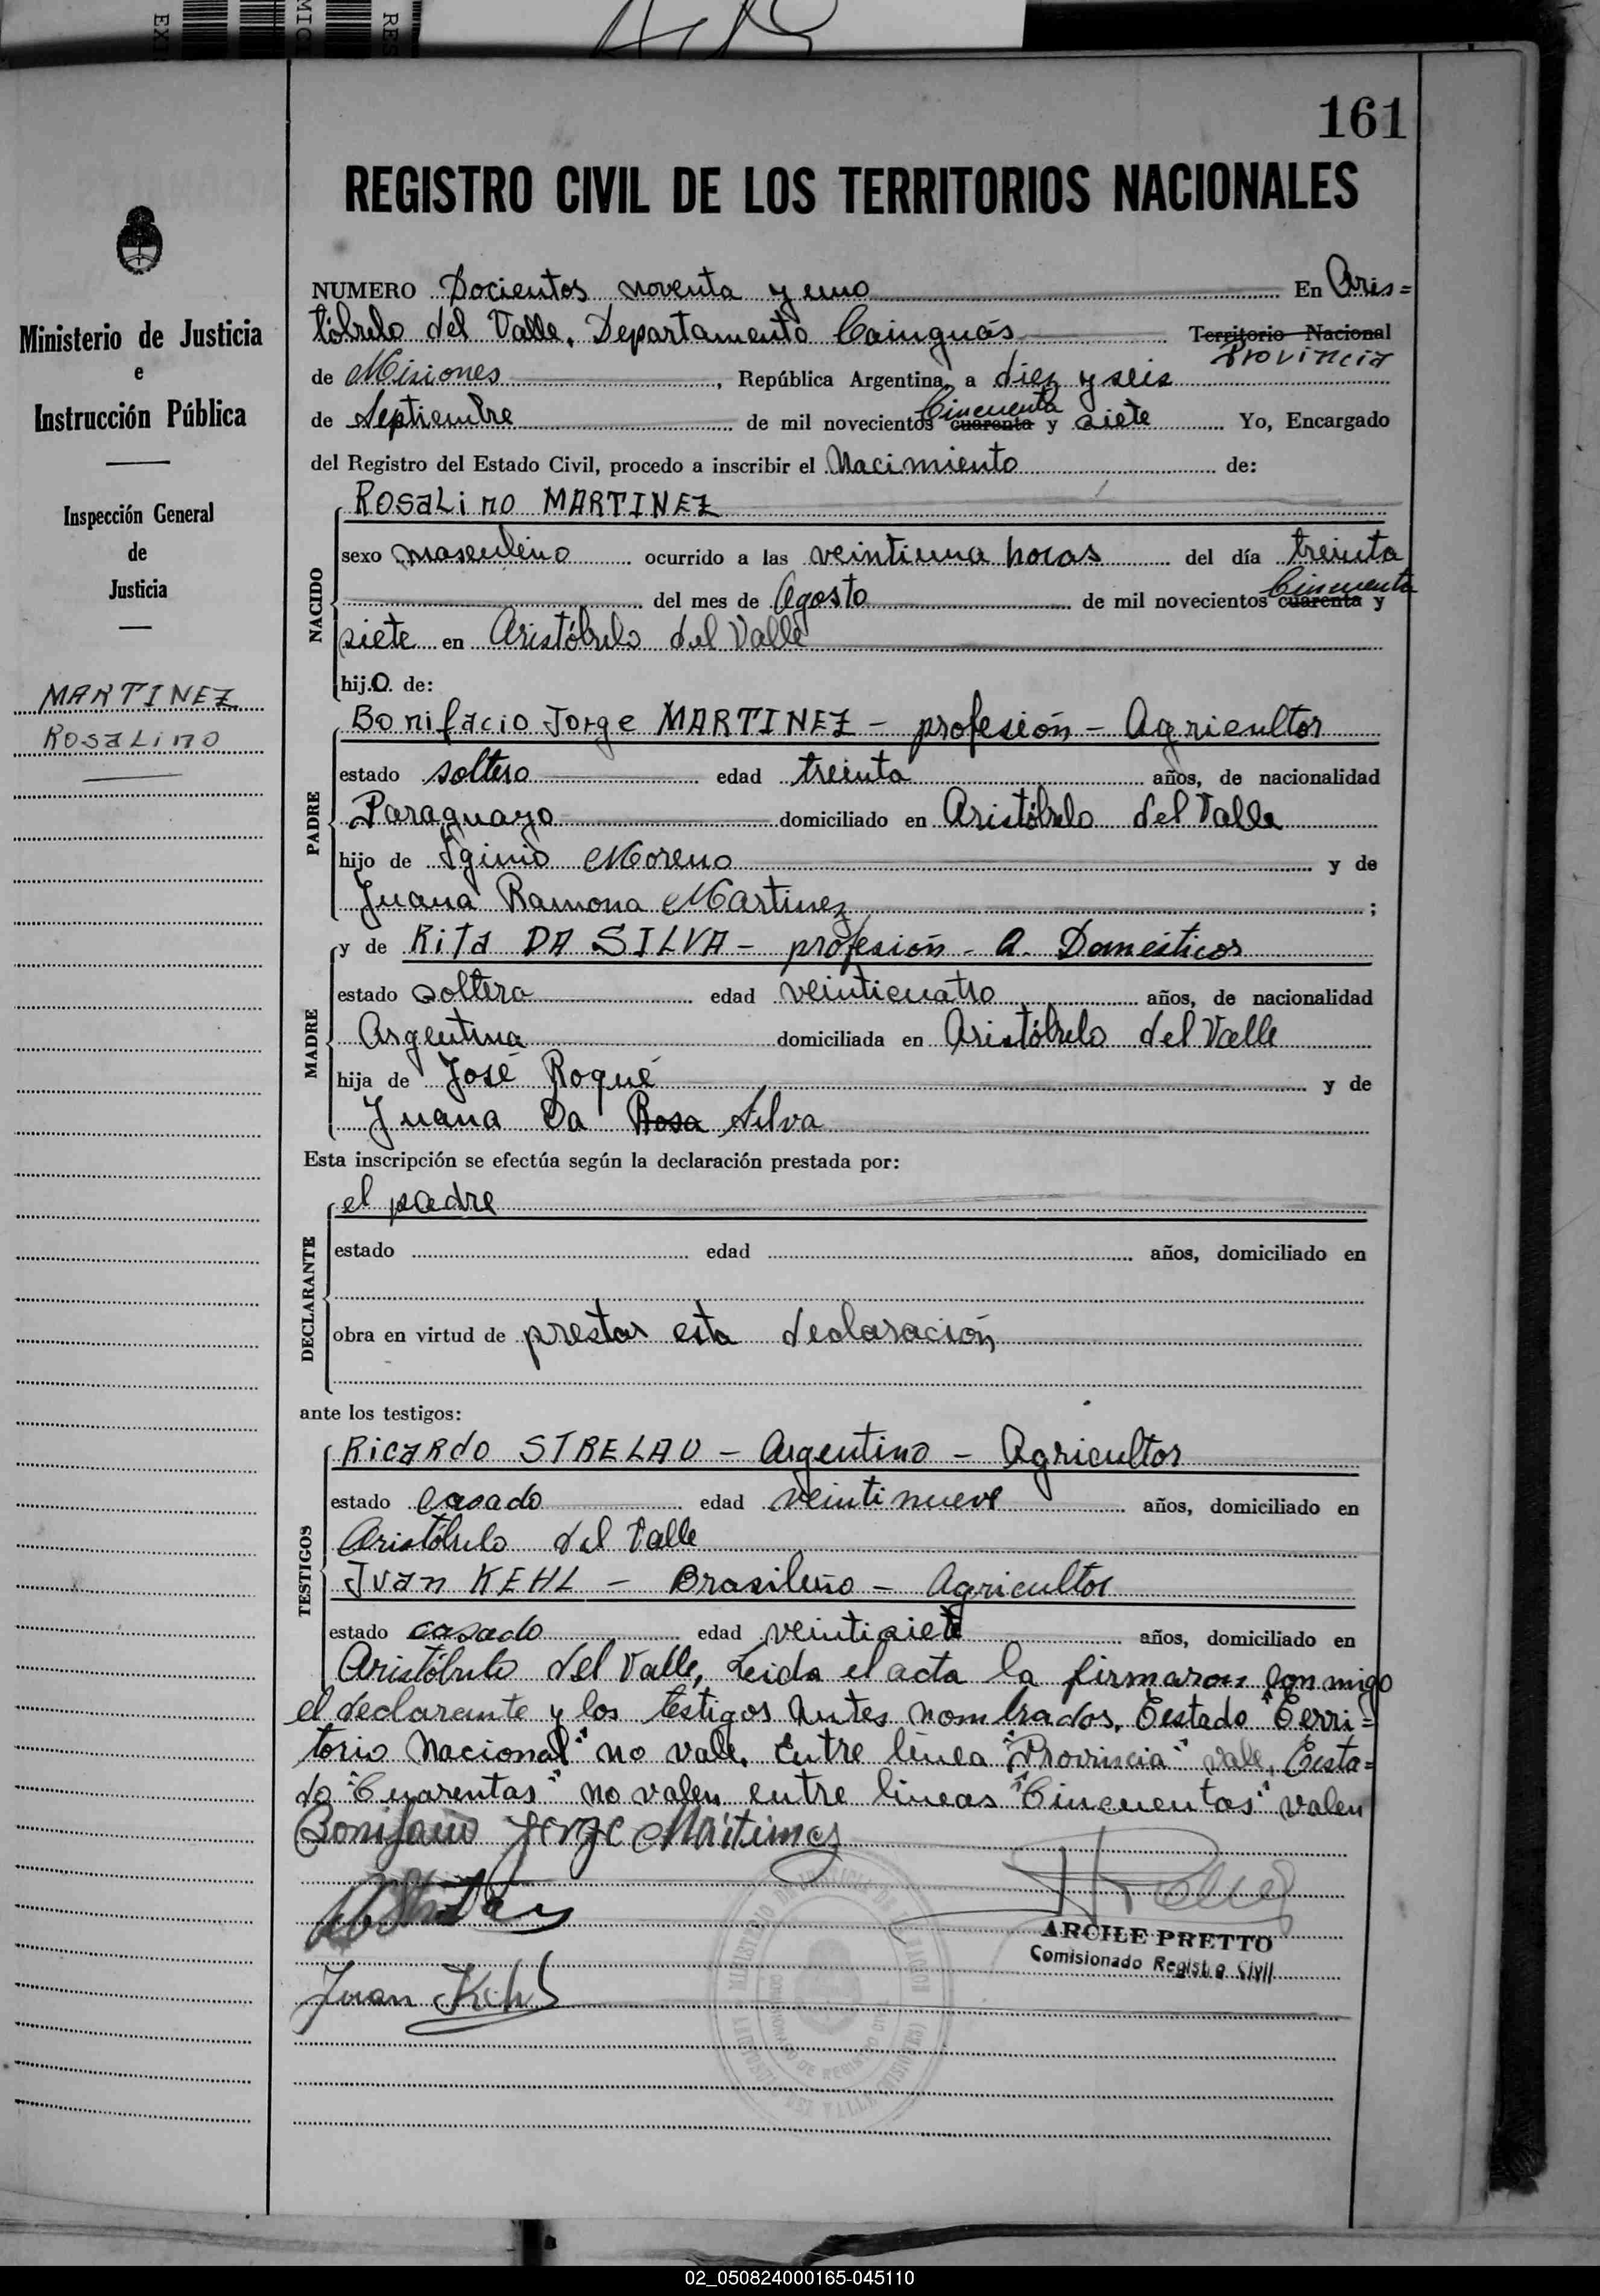 161
REGISTRO CIVIL DE LOS TERRITORIOS NACIONALES
Ministerio de Justicia
e
Instrucción Pública
Inspección General
de
Justicia
MARTINEZ
ROSALINO
NUMERO Docientos noventa y uno En Aris=
tóbulo del Valle, Departamento Cainguás Territorio Nacional
Provincia
de Misiones, República Argentina, a diez y seis
de Septiembre de mil novecientos cuarenta Cincuenta y siete Yo, Encargado
del Registro del Estado Civil, procedo a inscribir el Nacimiento de:
NACIDO
ROSALINO MARTINEZ
sexo masculino ocurrido a las veintiuna horas del día treinta
del mes de Agosto de mil novecientos cuarenta Cincuenta y
siete en Aristóbulo del Valle
hijo. de:
PADRE
Bonifacio Jorge MARTINEZ - profesión - Agricultor
estado soltero edad treinta años, de nacionalidad
Paraguayo domiciliado en Aristóbulo del Valle
hijo de Iginio Moreno y de
Juana Ramona Martinez ;
MADRE
y de Rita DA SILVA - profesión - A. Domésticos
estado soltera edad veinticuatro años, de nacionalidad
Argentina domiciliada en Aristóbulo del Valle
hija de José Roque y de
Juana Da Rosa Silva
Esta inscripción se efectúa según la declaración prestada por:
DECLARANTE
el padre
estado edad años, domiciliado en
obra en virtud de prestar esta declaración
ante los testigos:
TESTIGOS
RICARDO STRELAU - Argentino - Agricultor
estado casado edad veintinueve años, domiciliado en
Aristóbulo del Valle
Juan KEHL - Brasileño - Agricultor
estado casado edad veintisiete años, domiciliado en
Aristóbulo del Valle, Leida el acta la firmaron conmigo
el declarante y los testigos antes nombrados. Testado "Terri=
torio Nacional" no vale. Entre línea "Provincia" vale, Testa=
do "Cuarentas" no valen entre líneas "Cincuentas" valen
Bonifacio Jorge Martinez
ARCILE PRETTO
Comisionado Registro Civil
Juan Kehl
02_050824000165-045110